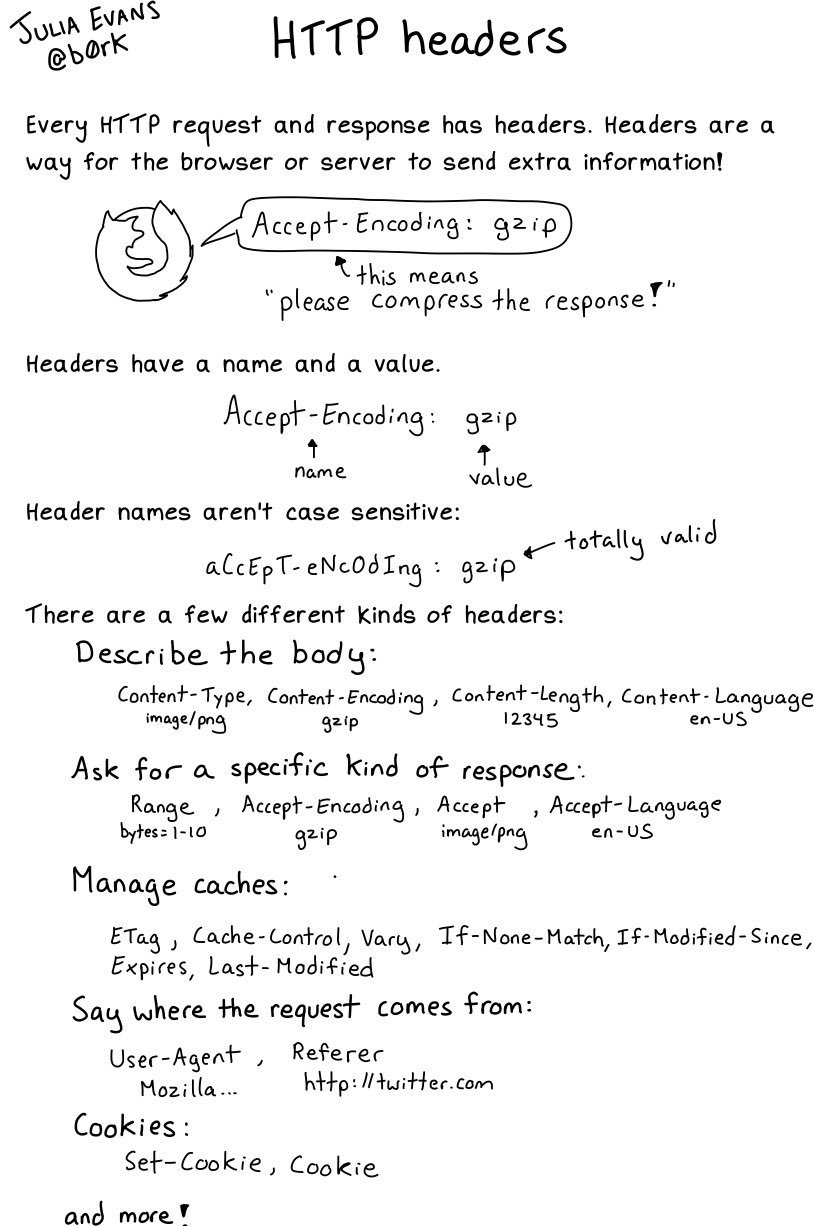 JULIA EVANS
@b0rk
HTTP headers
Every HTTP request and response has headers. Headers are a
way for the browser or server to send extra information!
Accept-Encoding: gzip
this means
"please compress the response!"
Headers have a name and a value.
Accept-Encoding: gzip
name value
Header names aren't case sensitive:
totally valid
aCcEpT-eNcOdIng: gzip
There are a few different kinds of headers:
Describe the body:
Content-Type, Content-Encoding, Content-Length, Content-Language
image/png gzip 12345 en-US
Ask for a specific kind of response:
Range, Accept-Encoding, Accept, Accept-Language
bytes=1-10 gzip image/png en-US
Manage caches:
ETag, Cache-Control, Vary, If-None-Match, If-Modified-Since,
Expires, Last-Modified
Say where the request comes from:
User-Agent, Referer
Mozilla... http://twitter.com
Cookies:
Set-Cookie, Cookie
and more!